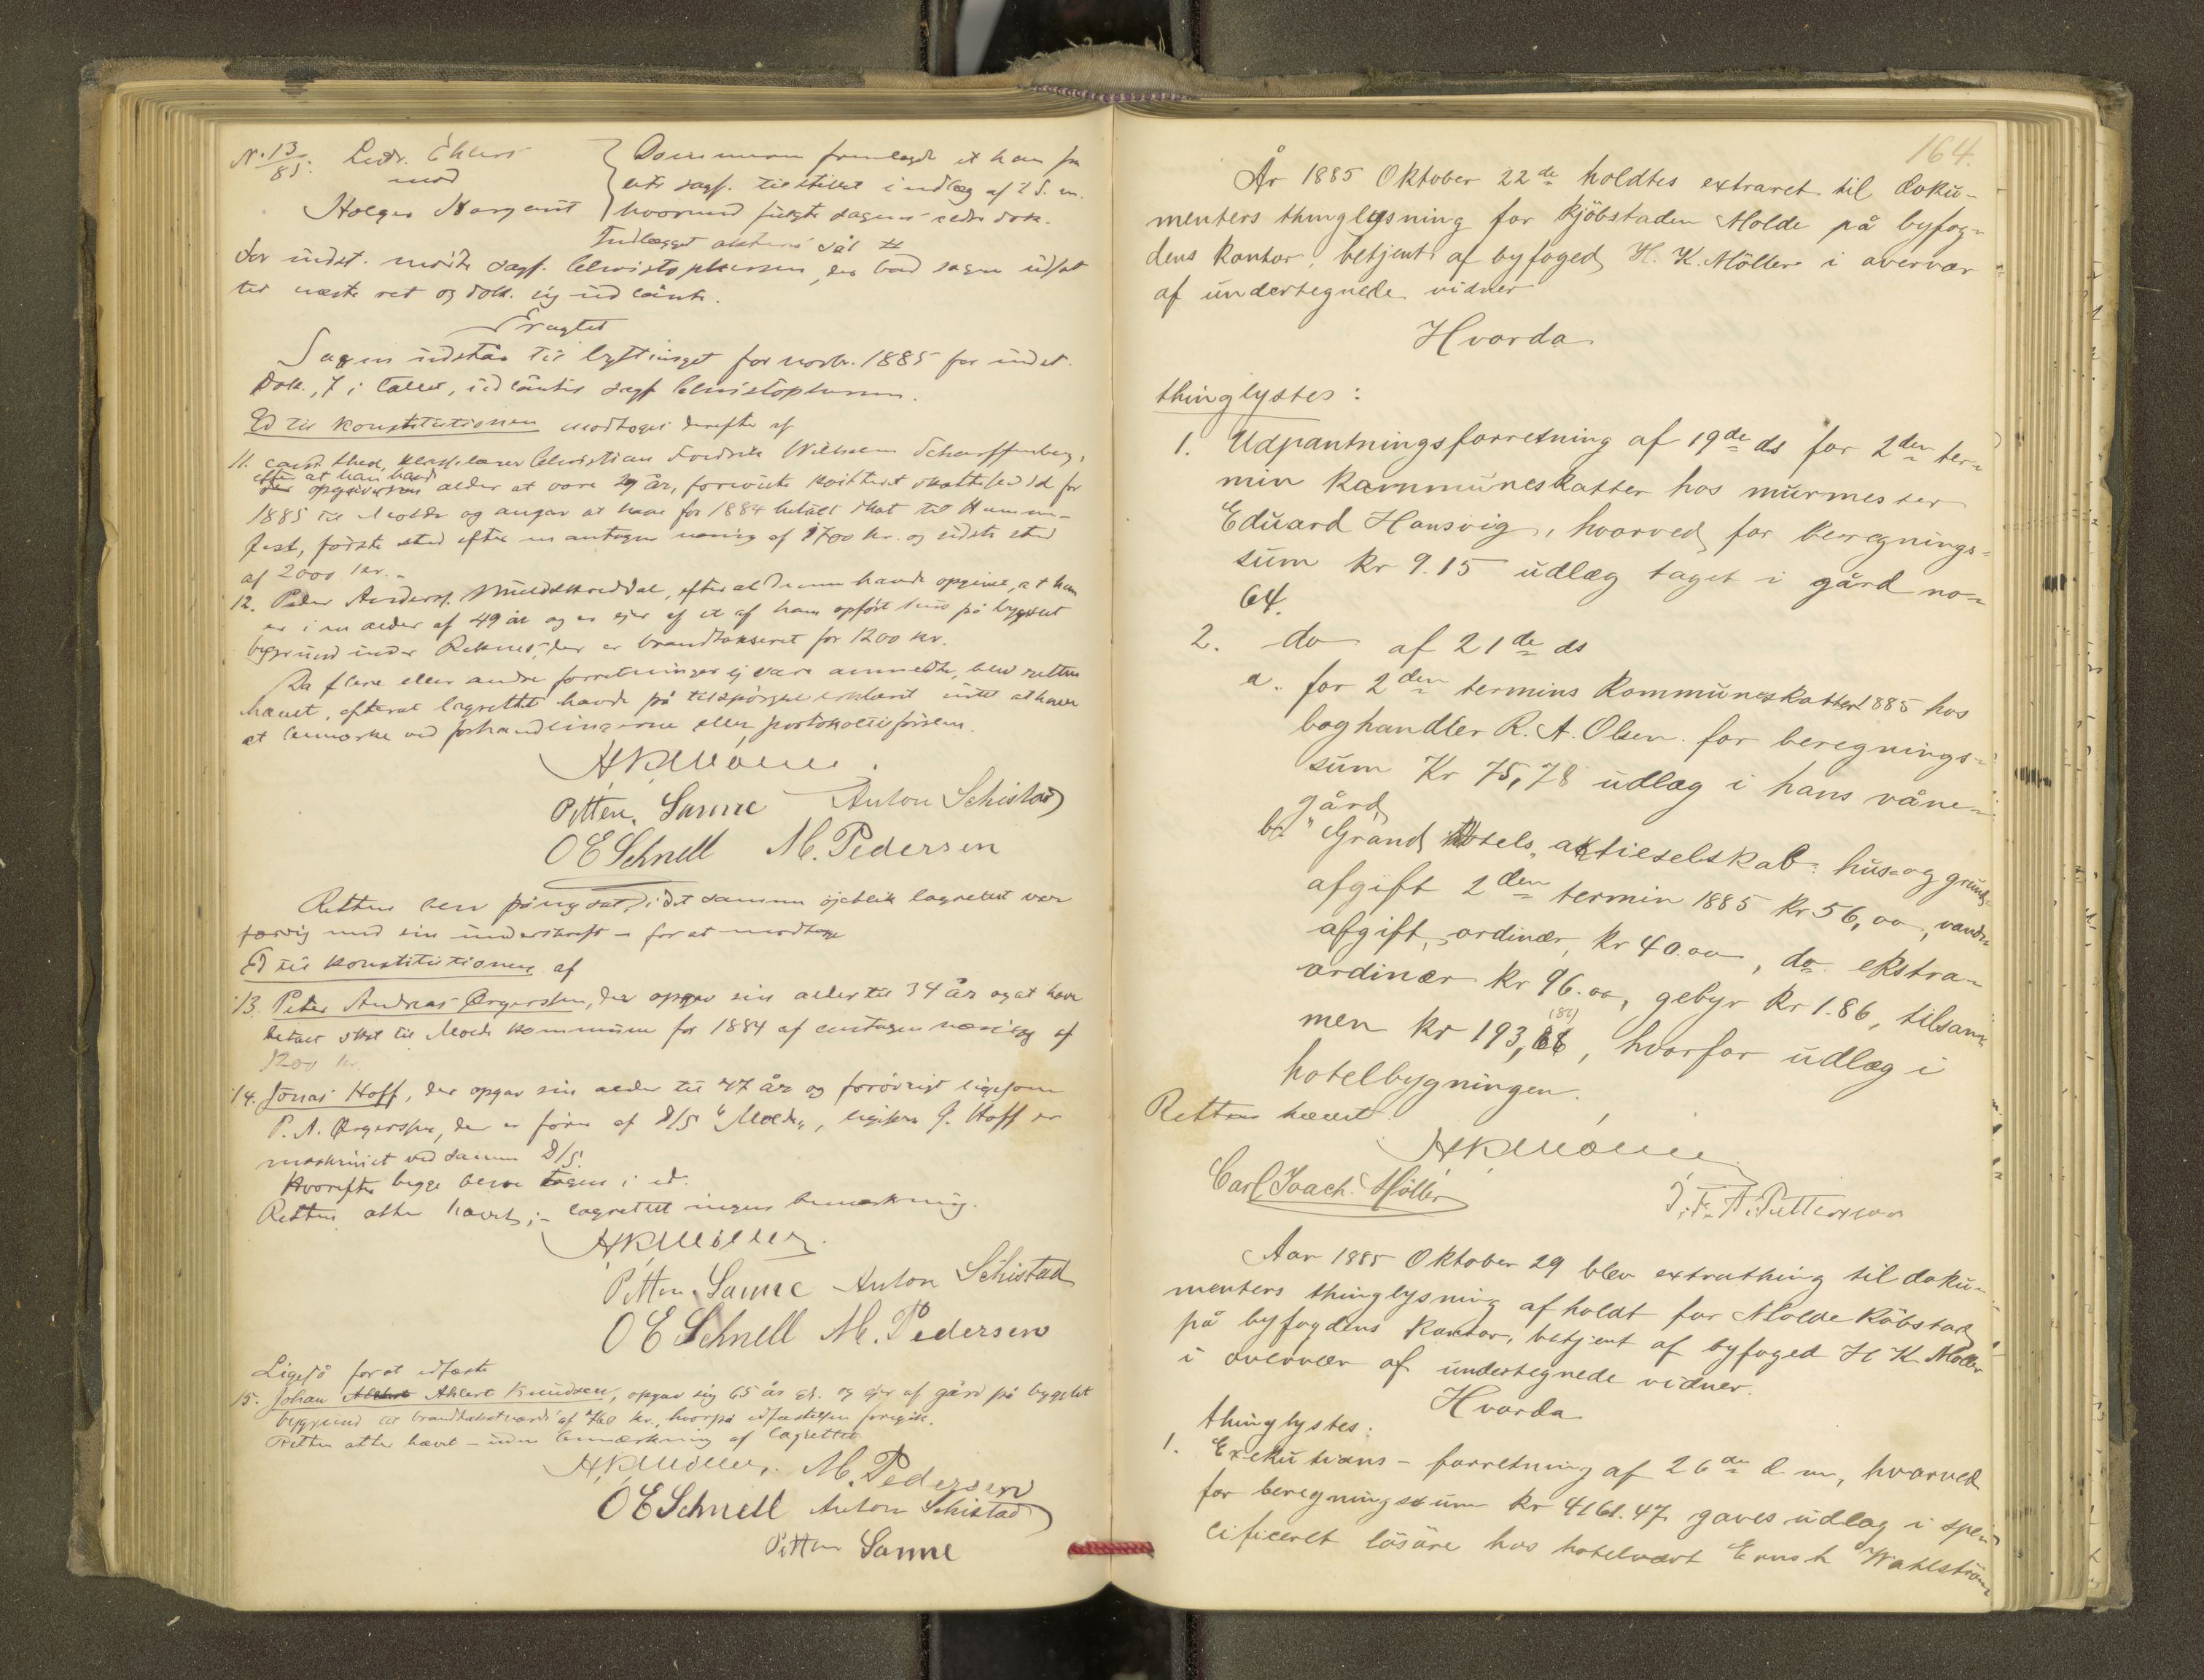 N. 13/85. Ledv. Ehlers
mod
Holger Nargaut
Dommeren fremlagde et ham fra
tilstillet indlæg af 2 d. m.
hvormed fulgte sagens dok.
Indlægget aktens så
For indst. mödte sagf. Christophersen, der bad sagen udsat
til næste ret og dok. sig udlånte.
Eragtet
Sagen udstår til bythinget for novbr. 1885 for indst.
Dok., 7 i tallet, udlåntes sagf. Christophersen.
Ed til konstitutionen modtoges derefter af
11. cand. theol, klasselærer Christian Fredrik Wilhelm Scharffenberg,
efter at han havde
opgivet sin alder at være 29 år, foreviste kvitteret skatteseddel for
1885 til Molde og angav at have for 1884 betalt skat til Hammer-
fest, förste sted efter en antagen næring af 1700 kr. og sidste sted
af 2000 kr. -
12. Peder Anders. efter at denne havde opgivet, at han
er i en alder af 49 år og er ejer af et af ham opfört hus på bygslet
bygrund under Reknes, der er brandtakseret for 1200 kr.
Da flere eller andre forretninger ej vare anmeldte, blev retten
hævet, efterat lagrettet havde på tilspörgsel erklæret intet at have
at bemærke ved forhandlingerne eller protokollförslen.
HKMöller.
Petter Sanne Anton Schistad
O E Schnell M. Pedersen
Retten blev påny sat, i det samme öjeblik lagrettet var
færdig med sin underskrift - for at modtage
Ed til konstitutionen af
13. Peter Andreas Örgersen, der opgav sin alder til 34 år og at have
betalt skat til Molde kommune for 1884 af antagen næring af
1200 kr.
14. Jonas Hoff, der opgav sin alder til 47 år og forövrigt ligesom
P. A. Örgersen, der er förer af D/S "Molde", ligesom J. Hoff er
maskinist ved samme D/S.
Hvorefter begge bleve tagne i ed.
Retten atter hævet; - lagrettet ingen bemærkning.
HKMöller.
Petter Sanne Anton Schistad
O E Schnell M. Pedersen
Ligeså for at edfæste
15. Johan Ahlert Knudsen, opgav sig 65 år gl. og ejer af gård på bygslet
bygrund til brandtakstværdi af 760 kr., hvorpå edfæstelsen foregik.
Retten atter hævet - uden bemærkning af lagrettet
HKMöller. M. Pedersen
O E Schnell Anton Schistad
Petter Sanne
164.
År 1885 Oktober 22de holdtes extraret til doku-
menters thinglysning for kjöbstaden Molde på byfog-
dens kontor, betjent af byfoged H. K. Möller i overvær
af undertegnede vidner
Hvorda
thinglystes:
1. Udpantningsforretning af 19de ds for 2den ter-
min kommuneskatter hos murmester
Eduard Hansvig, hvorved for beregnings-
sum kr 9.15 udlæg taget i gård no-
64.
2. do af 21de ds
a. for 2den termins kommuneskatter 1885 hos
boghandler R. A. Olsen for beregnings-
sum Kr 75,78 udlæg i hans våne-
gård
b. "Grand Hotels" aktieselskab: hus- og grund-
afgift 2den termin 1885 kr 56,00, vand-
afgift, ordinær, kr 40.00, do ekstra-
ordinær kr 96.00, gebyr kr 1.86, tilsam-
(86)
men kr 193,86, hvorfor udlæg i
hotelbygningen.
Retten hævet.
HKMöller
Carl Joach. Möller J. F. A. Petterson
Aar 1885 Oktober 29 blev extrathing til doku-
menters thinglysning afholdt for Molde Köbstad
på byfogdens kontor, betjent af byfoged H K Möller
i overvær af undertegnede vidner.
Hvorda
thinglystes:
1. Exekutions - forretning af 26de d m, hvorved
for beregningssum kr 4161.47 gaves udlæg i spe-
cificeret lösöre hos hotelvært Ernst Wahlström